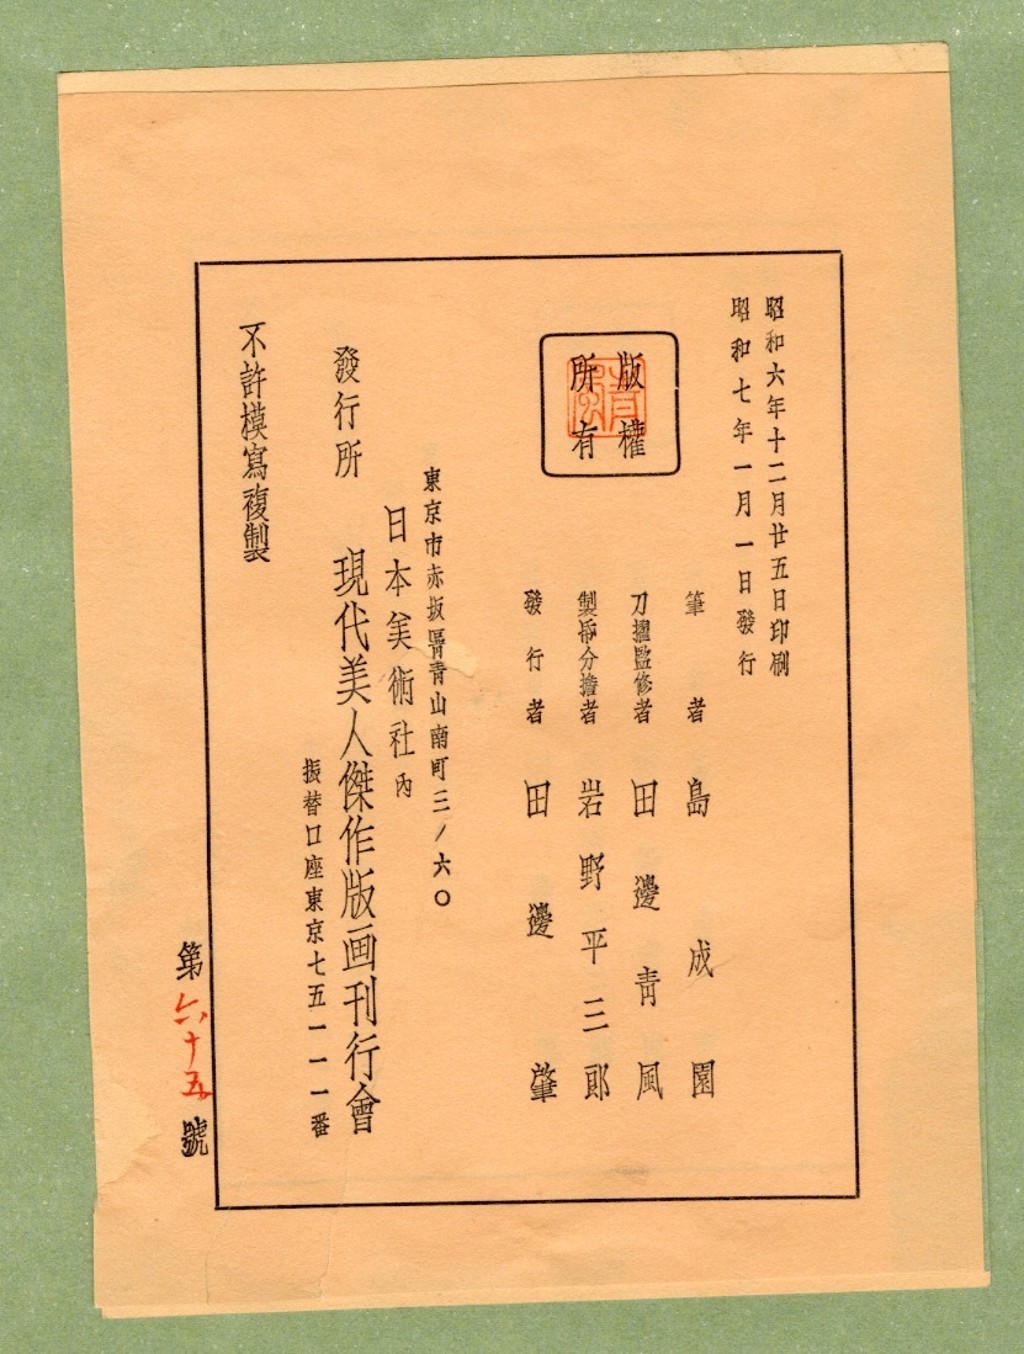 昭和六年十二月廿五日印刷
昭和七年一月一日發行
版權
所有
靑風
筆者 島成園
刀擢監修者 田邊靑風
製版分擔者 岩野平三郞
發行者 田邊肇
東京市赤坂區靑山南町三ノ六〇
日本美術社內
發行所 現代美人傑作版画刊行會
振替口座東京七五一一一番
不許模寫複製
第六十五號